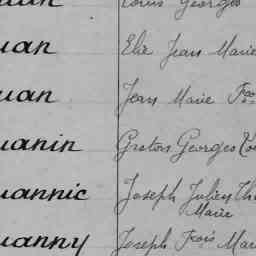 Louis Georges
uan Elie Jean Marie
uan Jean Marie Fçois
uanin Gaston Georges
uannic Joseph Julien Th
Marie
uanny Joseph Fçois Mar